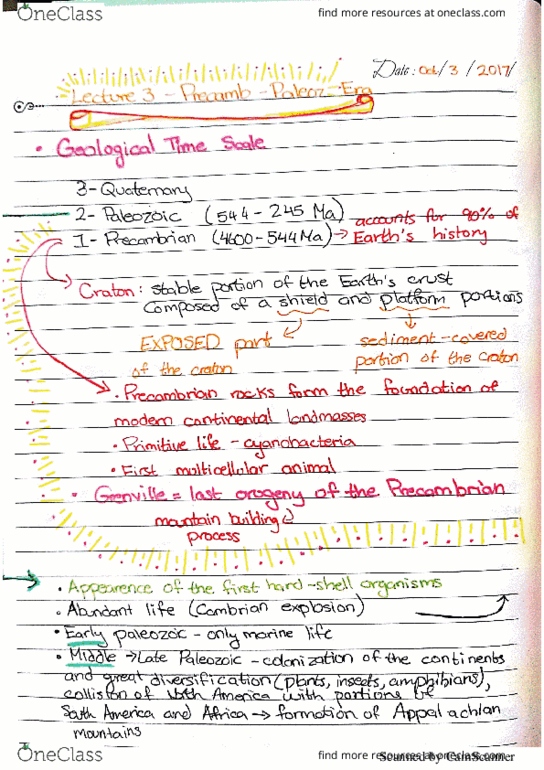 OneClass
find more resources at oneclass.com
Date: Oct/3/2017/
Lecture 3 - Precamb - Paleoz - Era
• Geological Time Scale
3- Quaternary
2- Paleozoic (544 - 245 Ma) accounts for 90% of
1- Precambrian (4600-544Ma) → Earth's history
Craton: stable portion of the Earth's crust
composed of a shield and platform portions
EXPOSED part sediment-covered
of the craton portion of the craton
• Precambrian rocks form the foundation of
modern continental landmasses
• Primitive life - cyanobacteria
• First multicellular animal
• Grenville = last orogeny of the Precambrian
mountain building
process
• Appearence of the first hard-shell organisms
• Abundant life (Cambrian explosion)
• Early paleozoic - only marine life
• Middle → Late Paleozoic - colonization of the continents
and great diversification (plants, insects, amphibians),
collision of North America with portions of
South America and Africa → formation of Appalachian
mountains
OneClass
find more resources at oneclass.com
Scanned by CamScanner